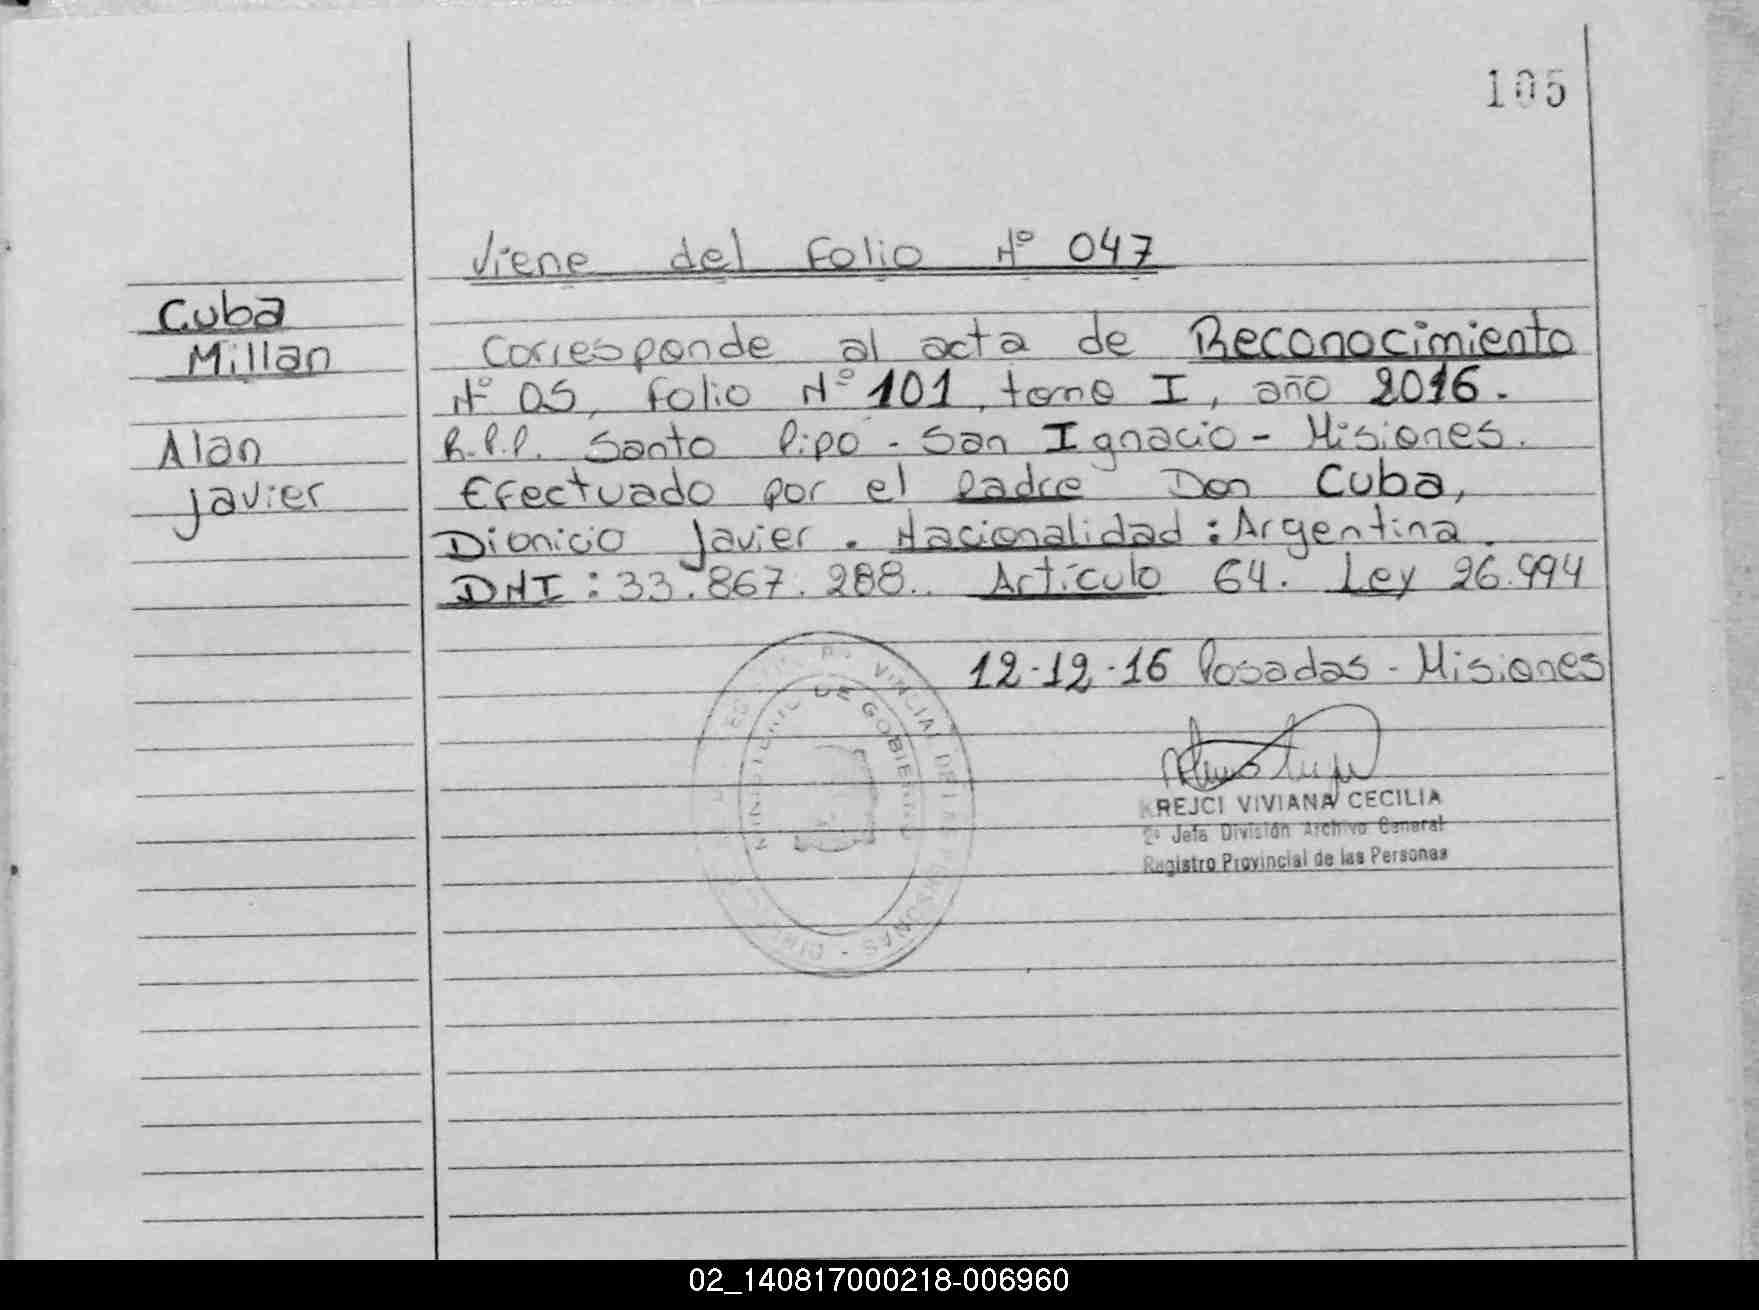 105
Viene del Folio Nº 047
Cuba
Millan
Alan
Javier
Corresponde al acta de Reconocimiento
Nº 05, folio Nº 101, tomo I, año 2016.
R.P.P. Santo Pipó - San Ignacio - Misiones.
Efectuado por el Padre Don Cuba,
Dionicio Javier. Nacionalidad: Argentina.
DNI: 33.867.288. Artículo 64. Ley 26.994
12-12-16 Posadas - Misiones
KREJCI VIVIANA CECILIA
2ª Jefa División Archivo General
Registro Provincial de las Personas
PROVINCIAL DE LAS PERSONAS
MINISTERIO DE GOBIERNO
02_140817000218-006960